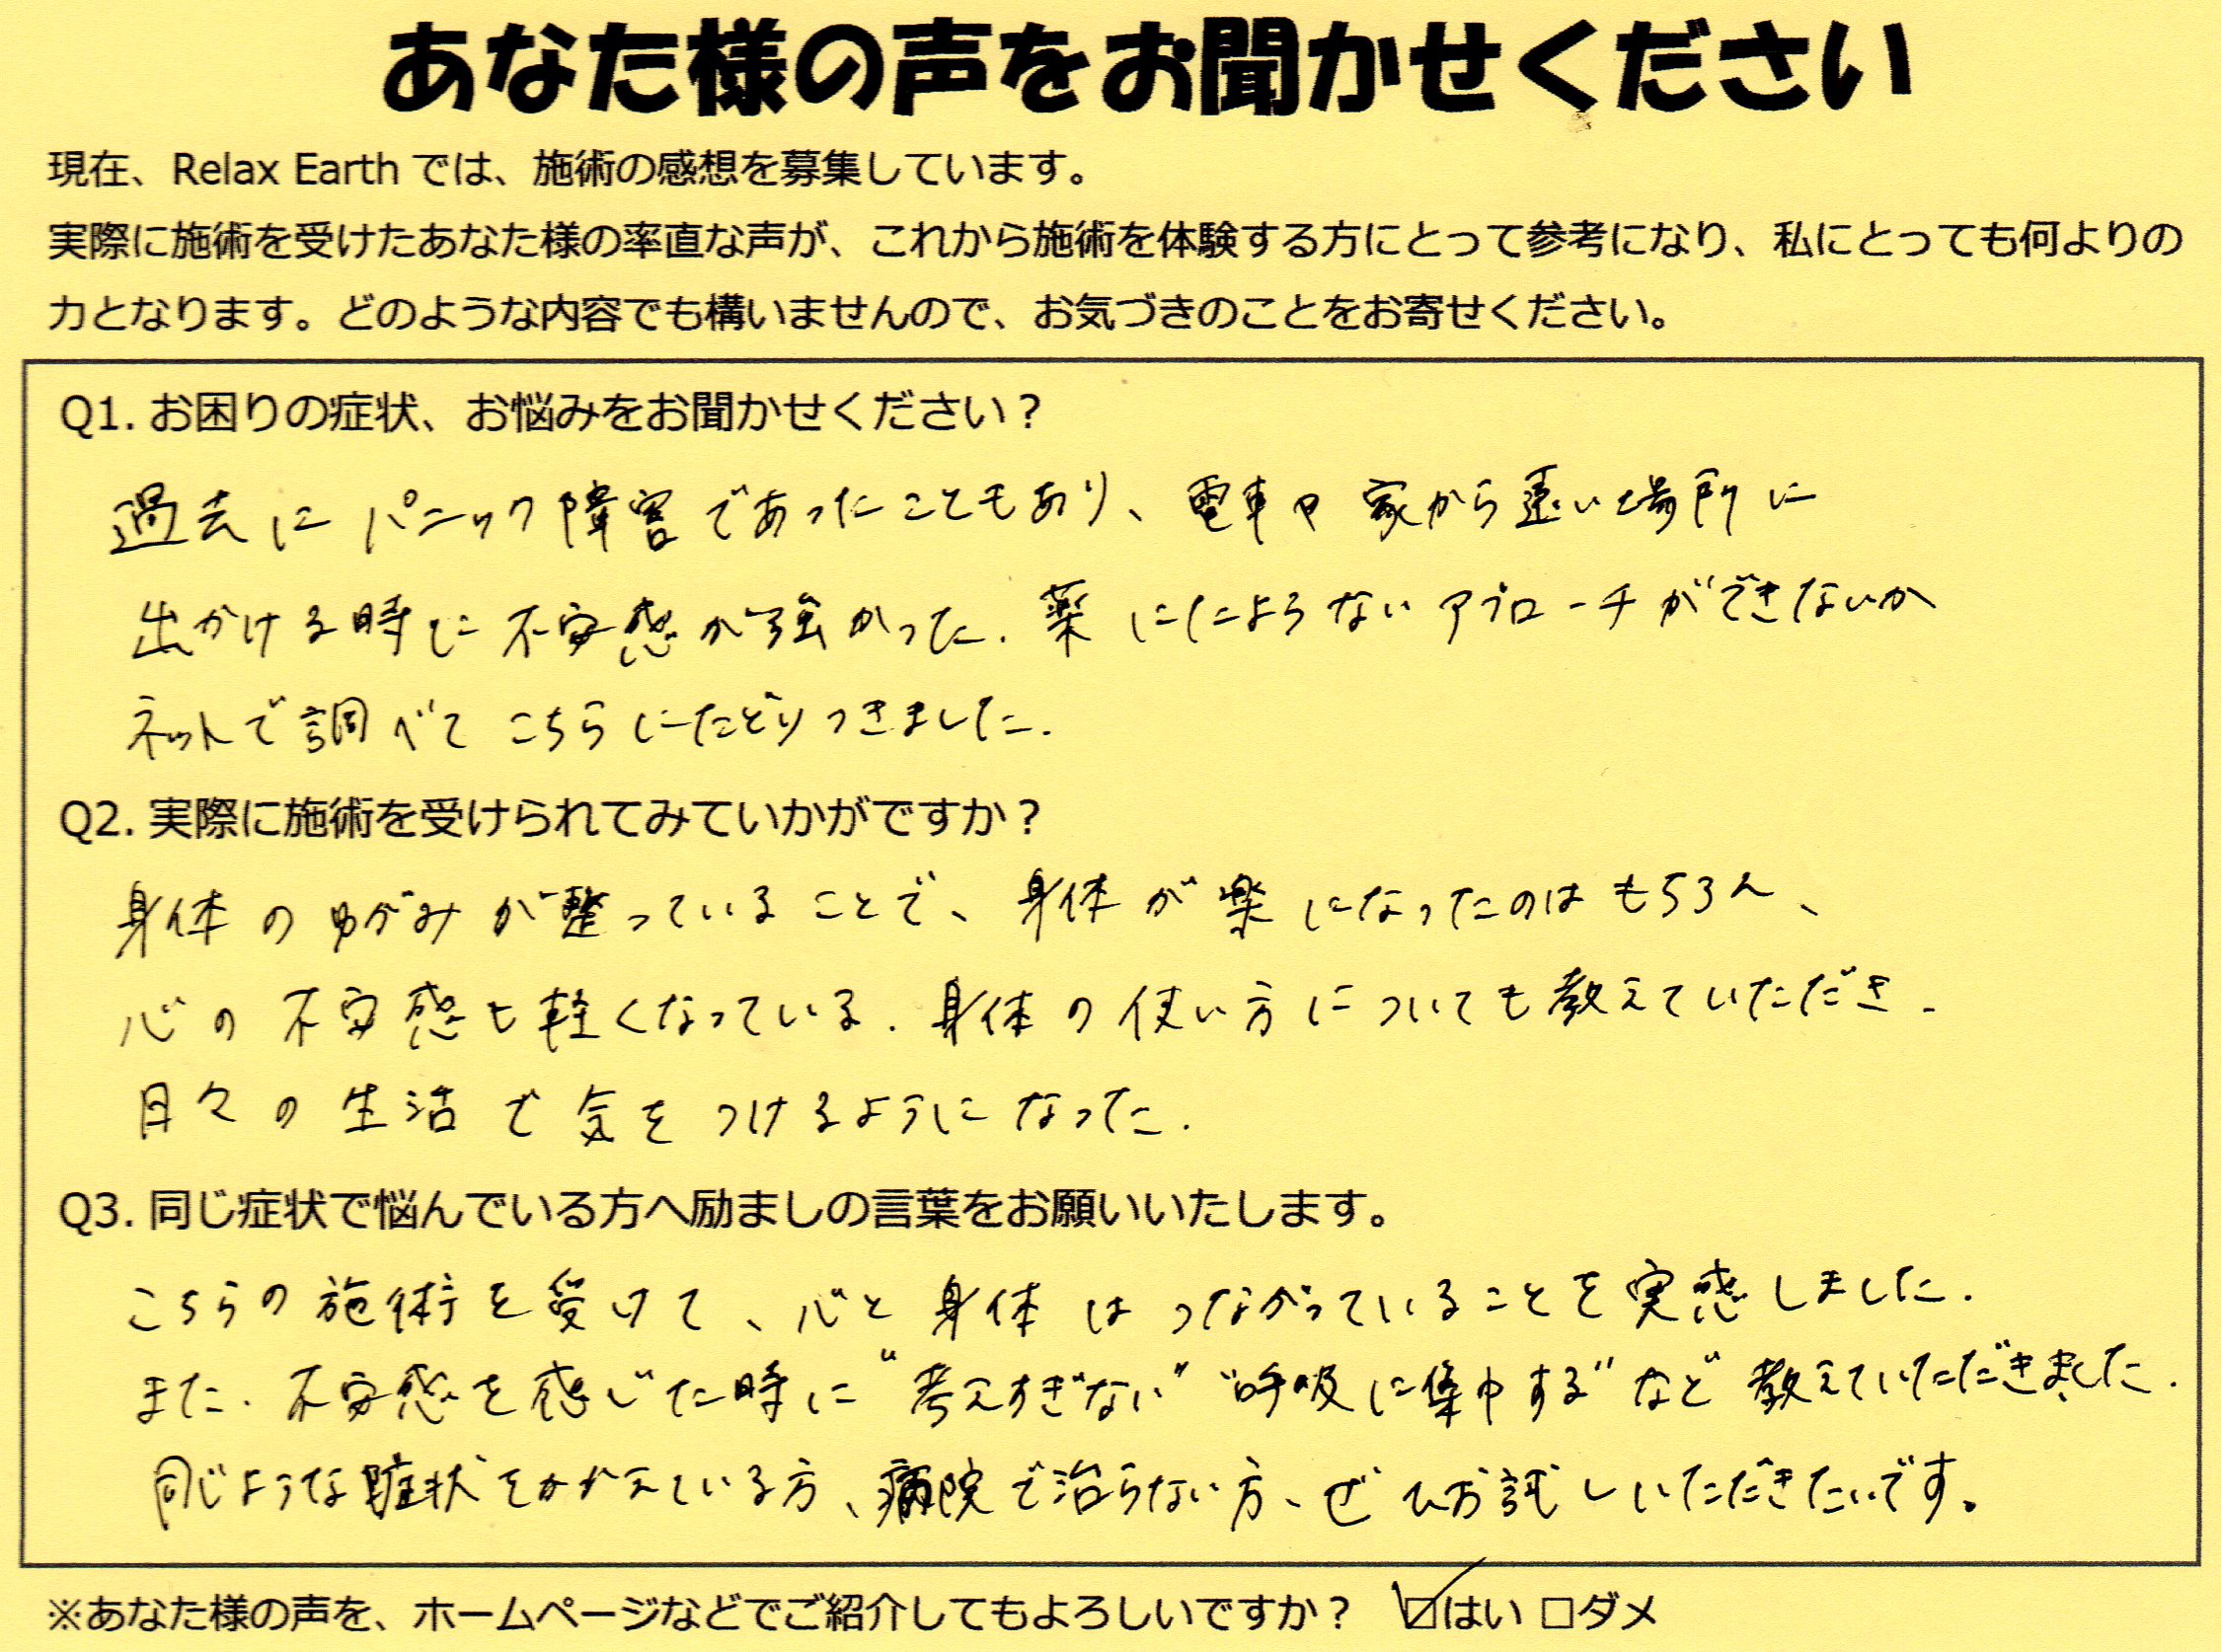 あなた様の声をお聞かせください
現在、Relax Earth では、施術の感想を募集しています。
実際に施術を受けたあなた様の率直な声が、これから施術を体験する方にとって参考になり、私にとっても何よりの
力となります。どのような内容でも構いませんので、お気づきのことをお寄せください。
Q1. お困りの症状、お悩みをお聞かせください？
過去にパニック障害であったこともあり、電車や家から遠い場所に
出かける時に不安感が強かった．薬にたよらないアプローチができないか
ネットで調べてこちらにたどりつきました．
Q2. 実際に施術を受けられてみていかがですか？
身体のゆがみが整っていることで、身体が楽になったのはもちろん、
心の不安感も軽くなっている．身体の使い方についても教えていただき、
日々の生活で気をつけるようになった．
Q3. 同じ症状で悩んでいる方へ励ましの言葉をお願いいたします。
こちらの施術を受けて、心と身体はつながっていることを実感しました．
また、不安感を感じた時に“考えすぎない”“呼吸に集中する”など教えていただきました．
同じような症状をかかえている方、病院で治らない方、ぜひお試しいただきたいです。
※あなた様の声を、ホームページなどでご紹介してもよろしいですか？ ☑はい □ダメ